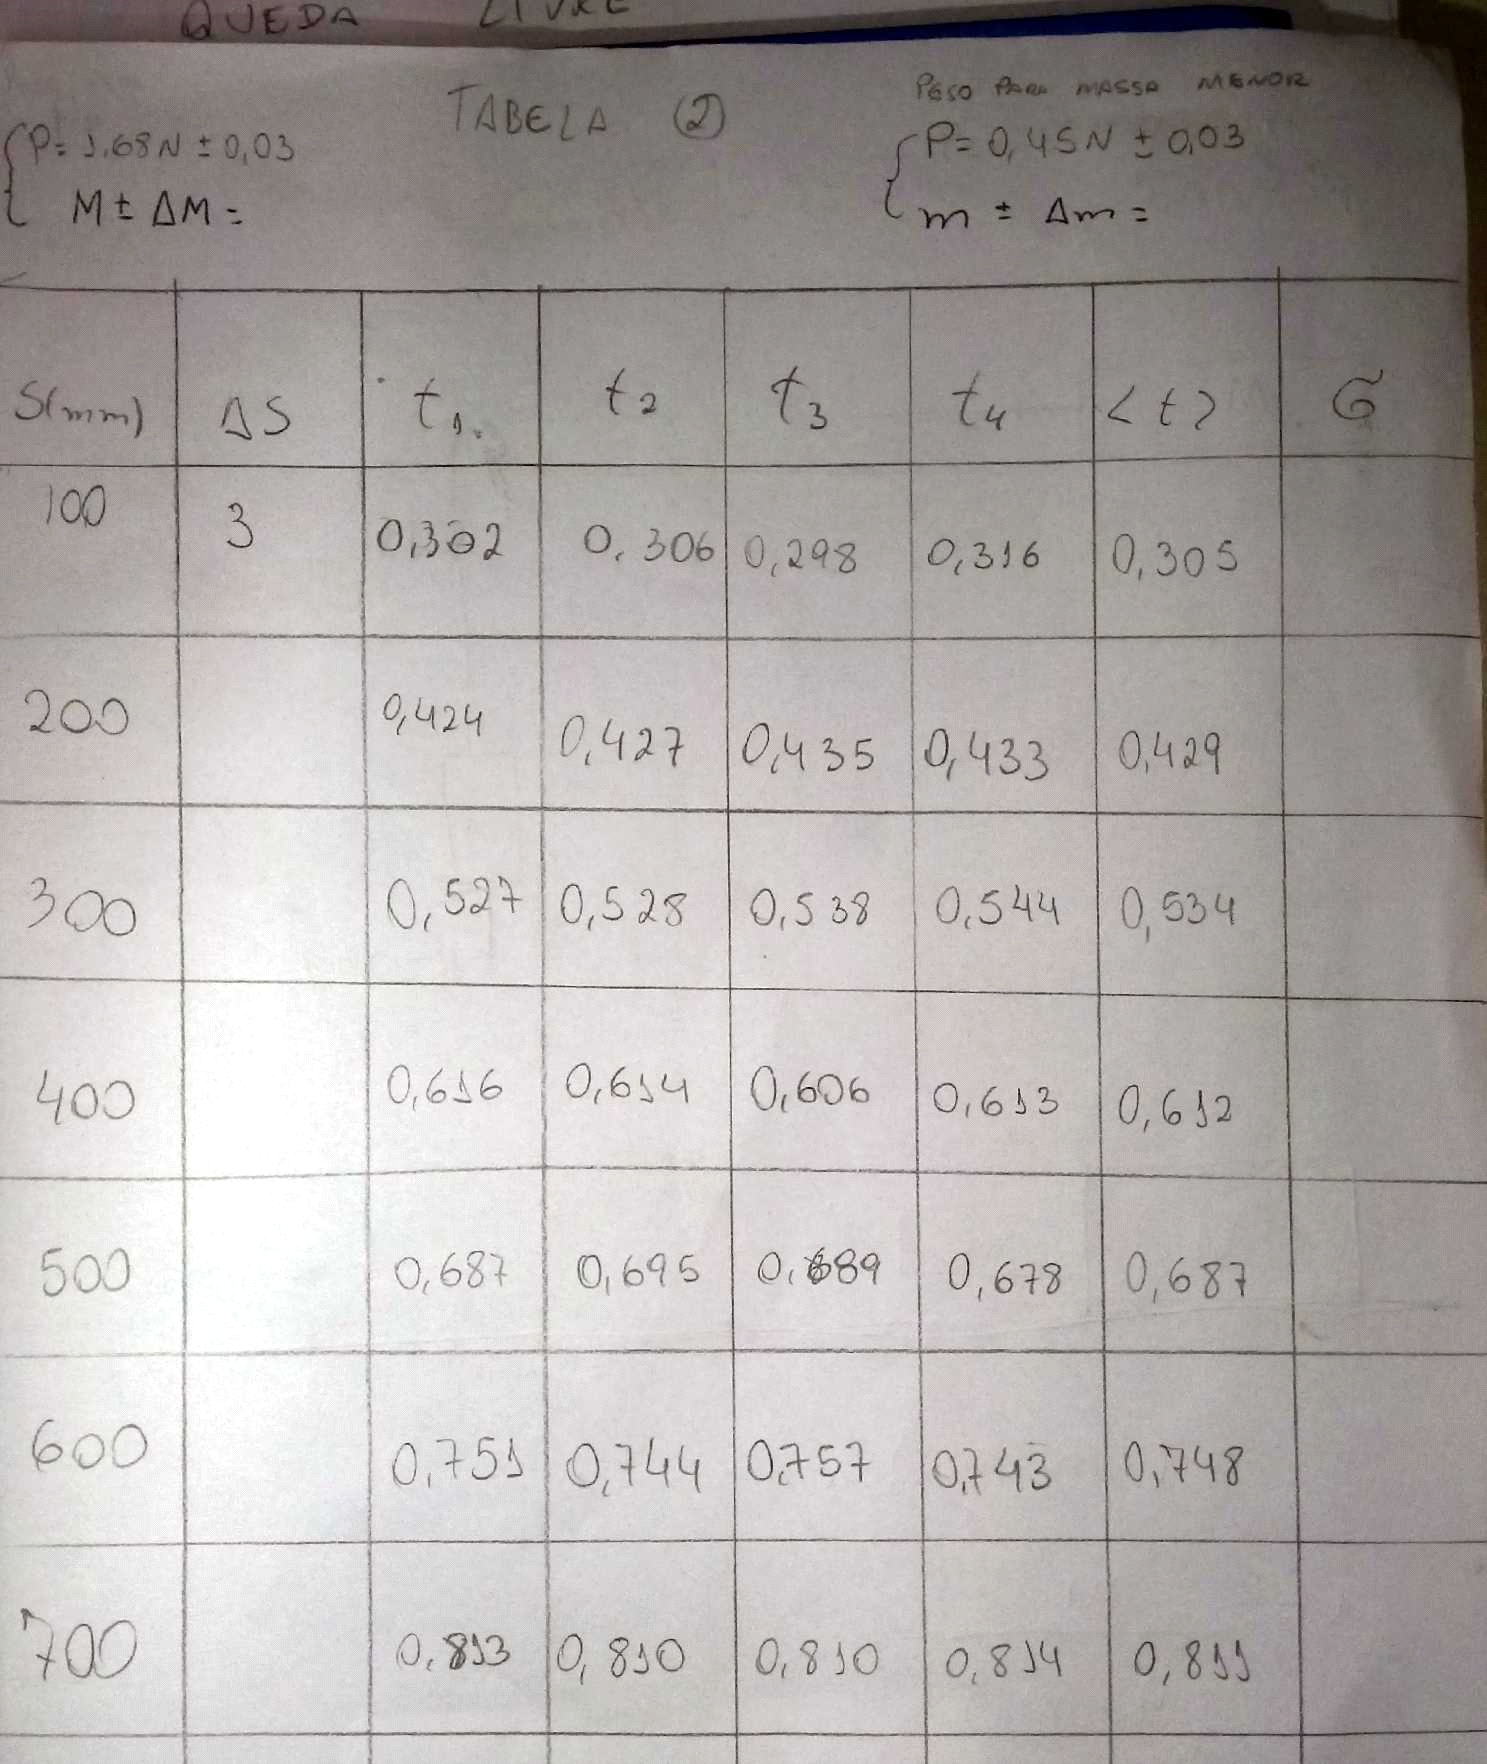 QUEDA LIVRE
TABELA (2)
P= 1.68N ± 0,03
M ± ΔM =
PESO PARA MASSA MENOR
P= 0,45N ± 0,03
m ± Δm =
S(mm) ΔS t1. t2 t3 t4 <t> σ
100 3 0,302 0,306 0,298 0,316 0,305
200 0,424 0,427 0,435 0,433 0,429
300 0,527 0,528 0,538 0,544 0,534
400 0,616 0,614 0,606 0,613 0,612
500 0,687 0,695 0,689 0,678 0,687
600 0,751 0,744 0,757 0,743 0,748
700 0,813 0,810 0,810 0,814 0,811